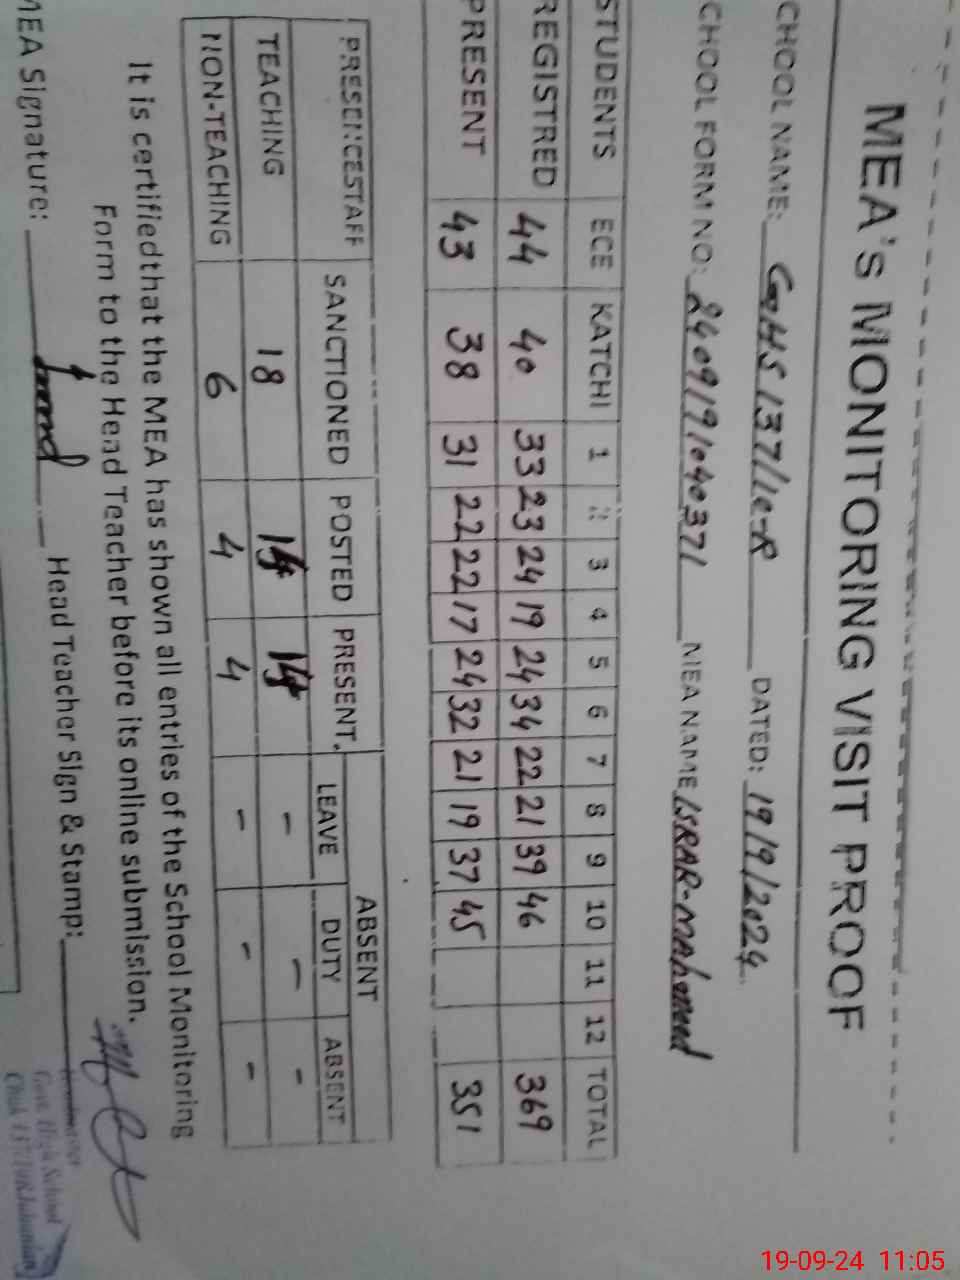 MEA's MONITORING VISIT PROOF
CHOOL NAME: GGHS 137/10-R DATED: 19/9/2024
CHOOL FORM NO: 2409191040371 MEA NAME ISRAR-Mahmood
STUDENTS ECE KATCHI 1 2 3 4 5 6 7 8 9 10 11 12 TOTAL
REGISTRED 44 40 33 23 24 19 24 34 22 21 39 46 369
PRESENT 43 38 31 22 22 17 24 32 21 19 37 45 351
PRESENCESTAFF SANCTIONED POSTED PRESENT. ABSENT
LEAVE DUTY ABSENT
TEACHING 18 14 14 - - -
NON-TEACHING 6 4 4 - - -
It is certifiedthat the MEA has shown all entries of the School Monitoring
Form to the Head Teacher before its online submission.
MEA Signature: Head Teacher Sign & Stamp:
Govt. High School
Chak 137/10R Jahanian
19-09-24 11:05